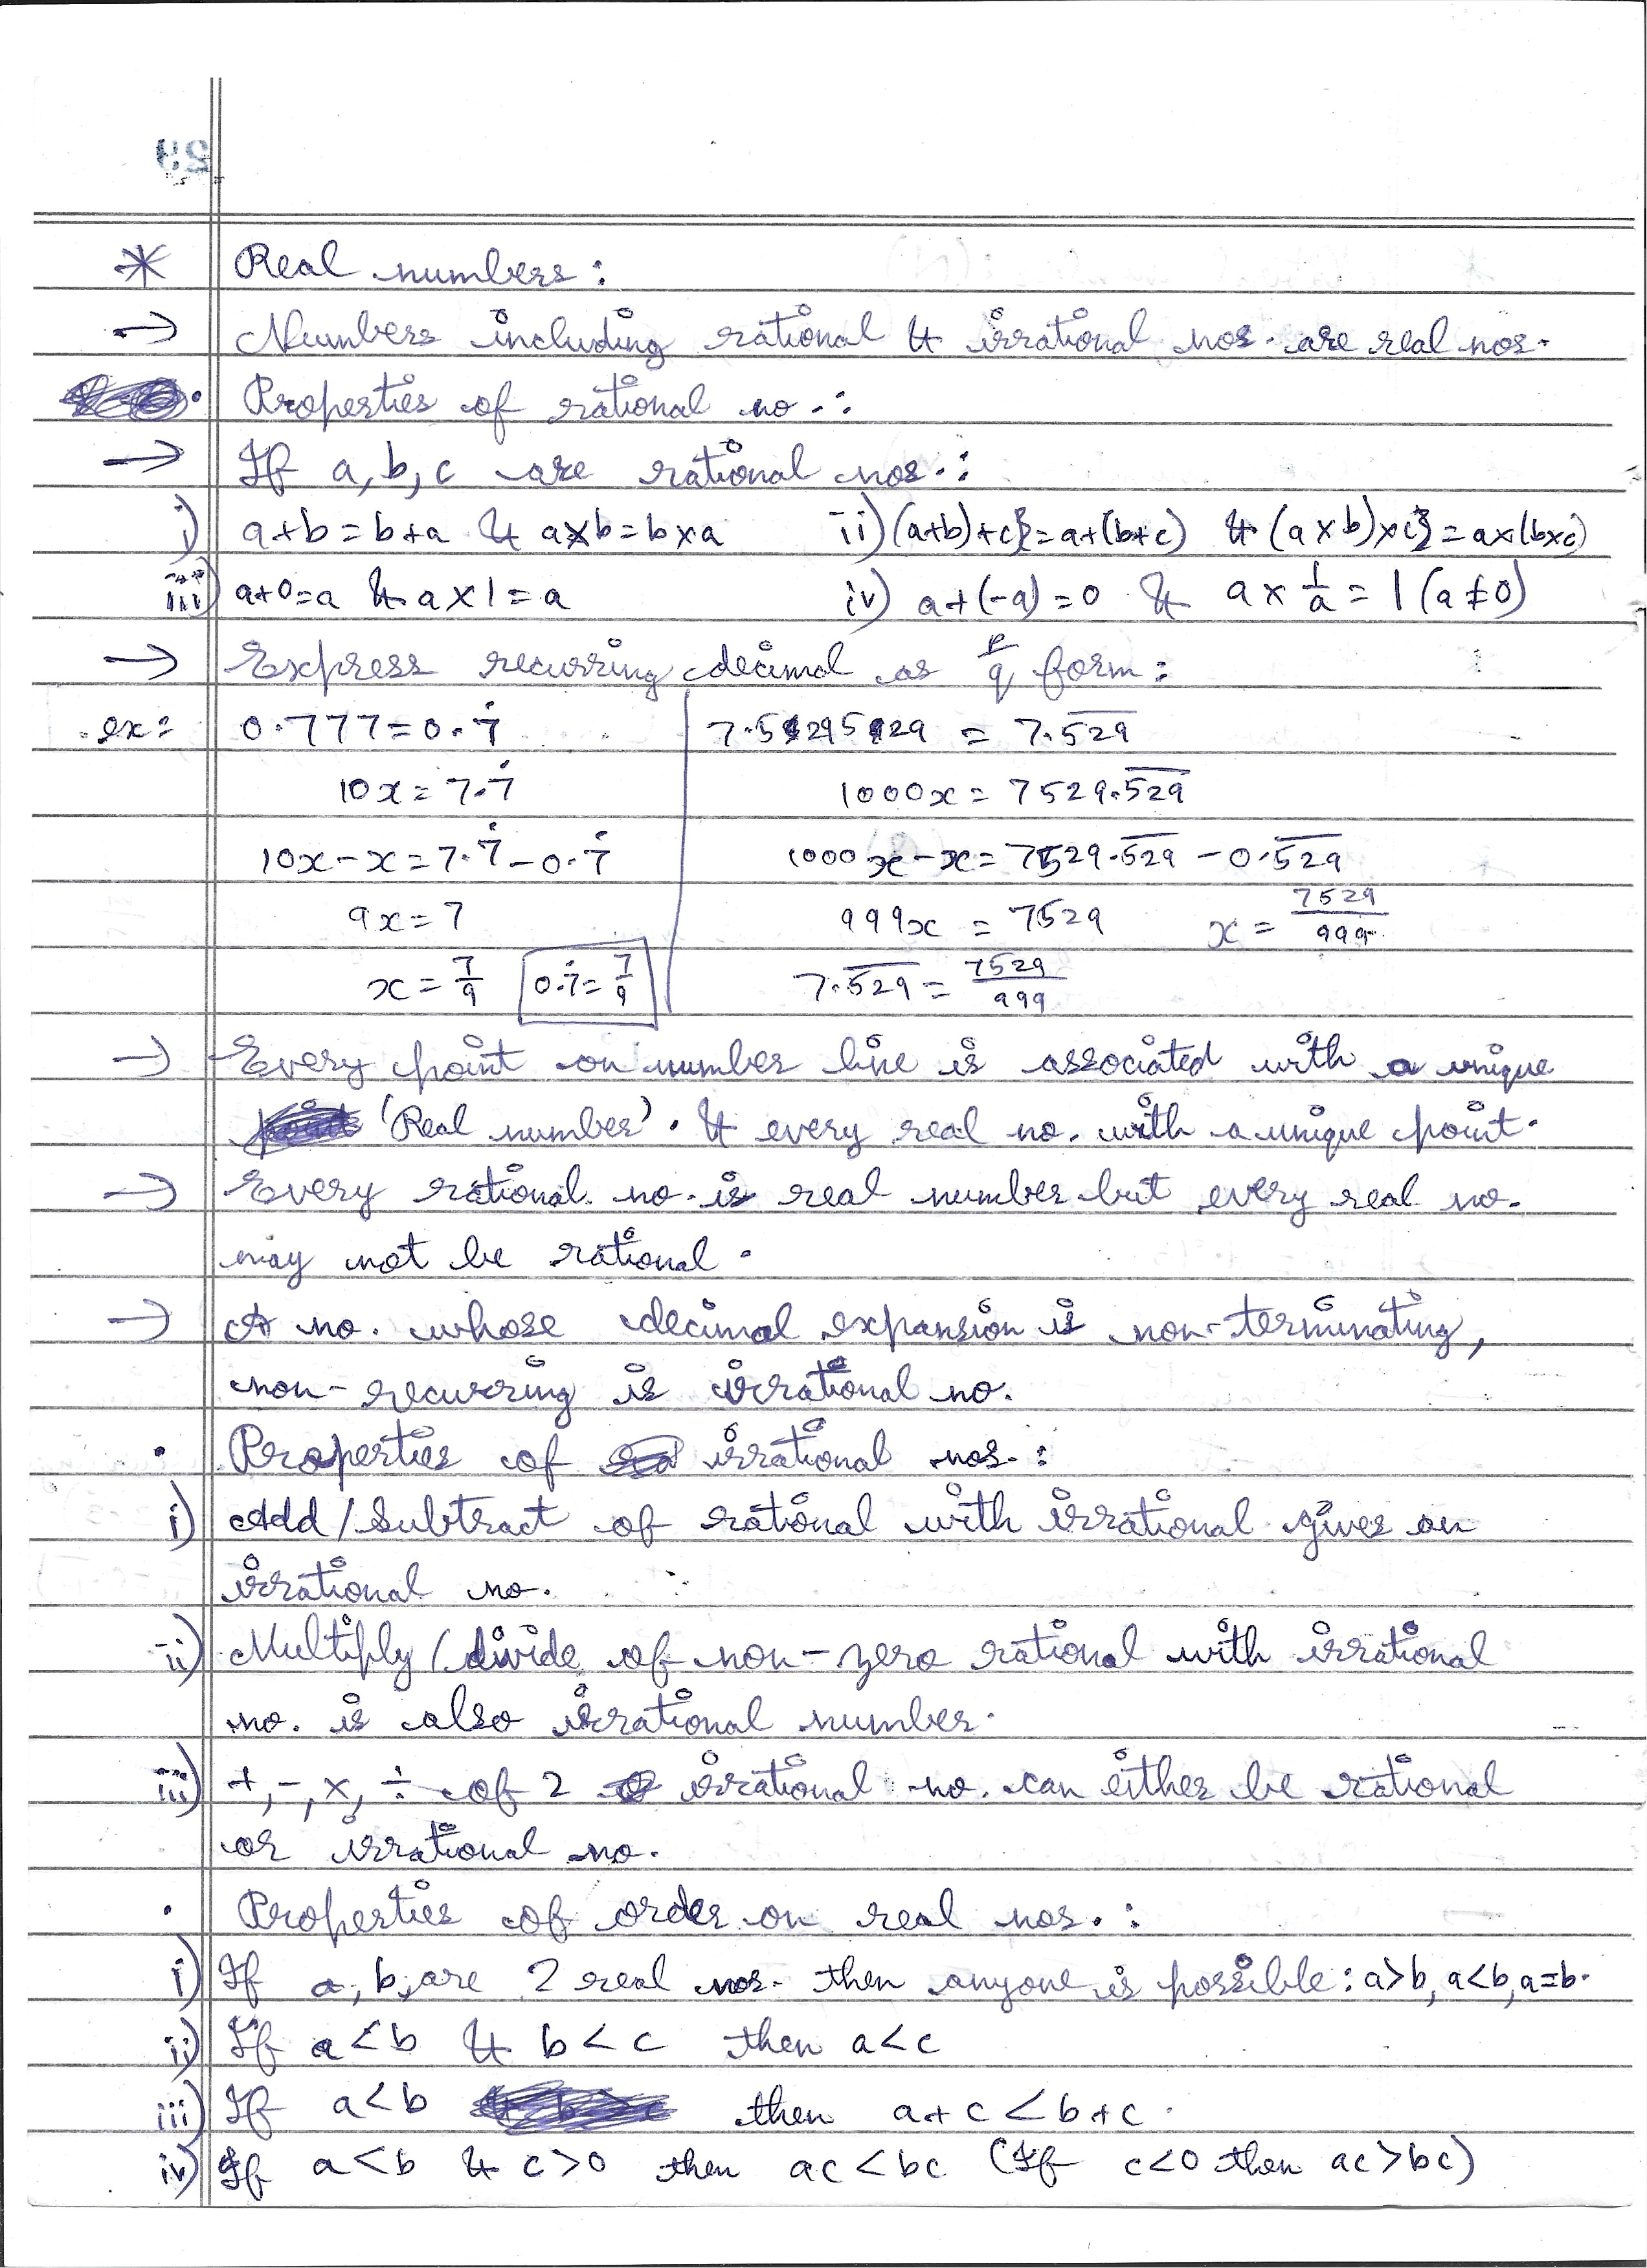 * Real numbers:
→ Numbers including rational & irrational nos. are real nos.
• Properties of rational no.:
→ If a, b, c are rational nos.:
i) a+b=b+a & a×b=b×a ii) (a+b)+c}=a+(b+c) & (a×b)×c}=a×(b×c)
iii) a+0=a & a×1=a iv) a+(-a)=0 & a×1/a=1 (a≠0)
→ Express recurring decimal as p/q form:
ex: 0.777=0.7̇
10x=7.7̇
10x-x=7.7̇-0.7̇
9x=7
x=7/9 0.7̇=7/9
7.529529 = 7.5̅2̅9̅
1000x = 7529.5̅2̅9̅
1000x-x=7529.5̅2̅9̅ - 0.5̅2̅9̅
999x = 7529 x = 7529/999
7.5̅2̅9̅ = 7529/999
→ Every point on number line is associated with a unique
'Real number'. & every real no. with a unique point.
→ Every rational no. is real number but every real no.
may not be rational.
→ A no. whose decimal expansion is non-terminating,
non-recurring is irrational no.
• Properties of irrational nos.:
i) Add/Subtract of rational with irrational gives an
irrational no.
ii) Multiply/divide of non-zero rational with irrational
no. is also irrational number.
iii) +, -, ×, ÷ of 2 irrational no. can either be rational
or irrational no.
• Properties of order on real nos.:
i) If a, b, are 2 real nos. then anyone is possible: a>b, a<b, a=b.
ii) If a<b & b<c then a<c
iii) If a<b then a+c<b+c.
iv) If a<b & c>0 then ac<bc (If c<0 then ac>bc)